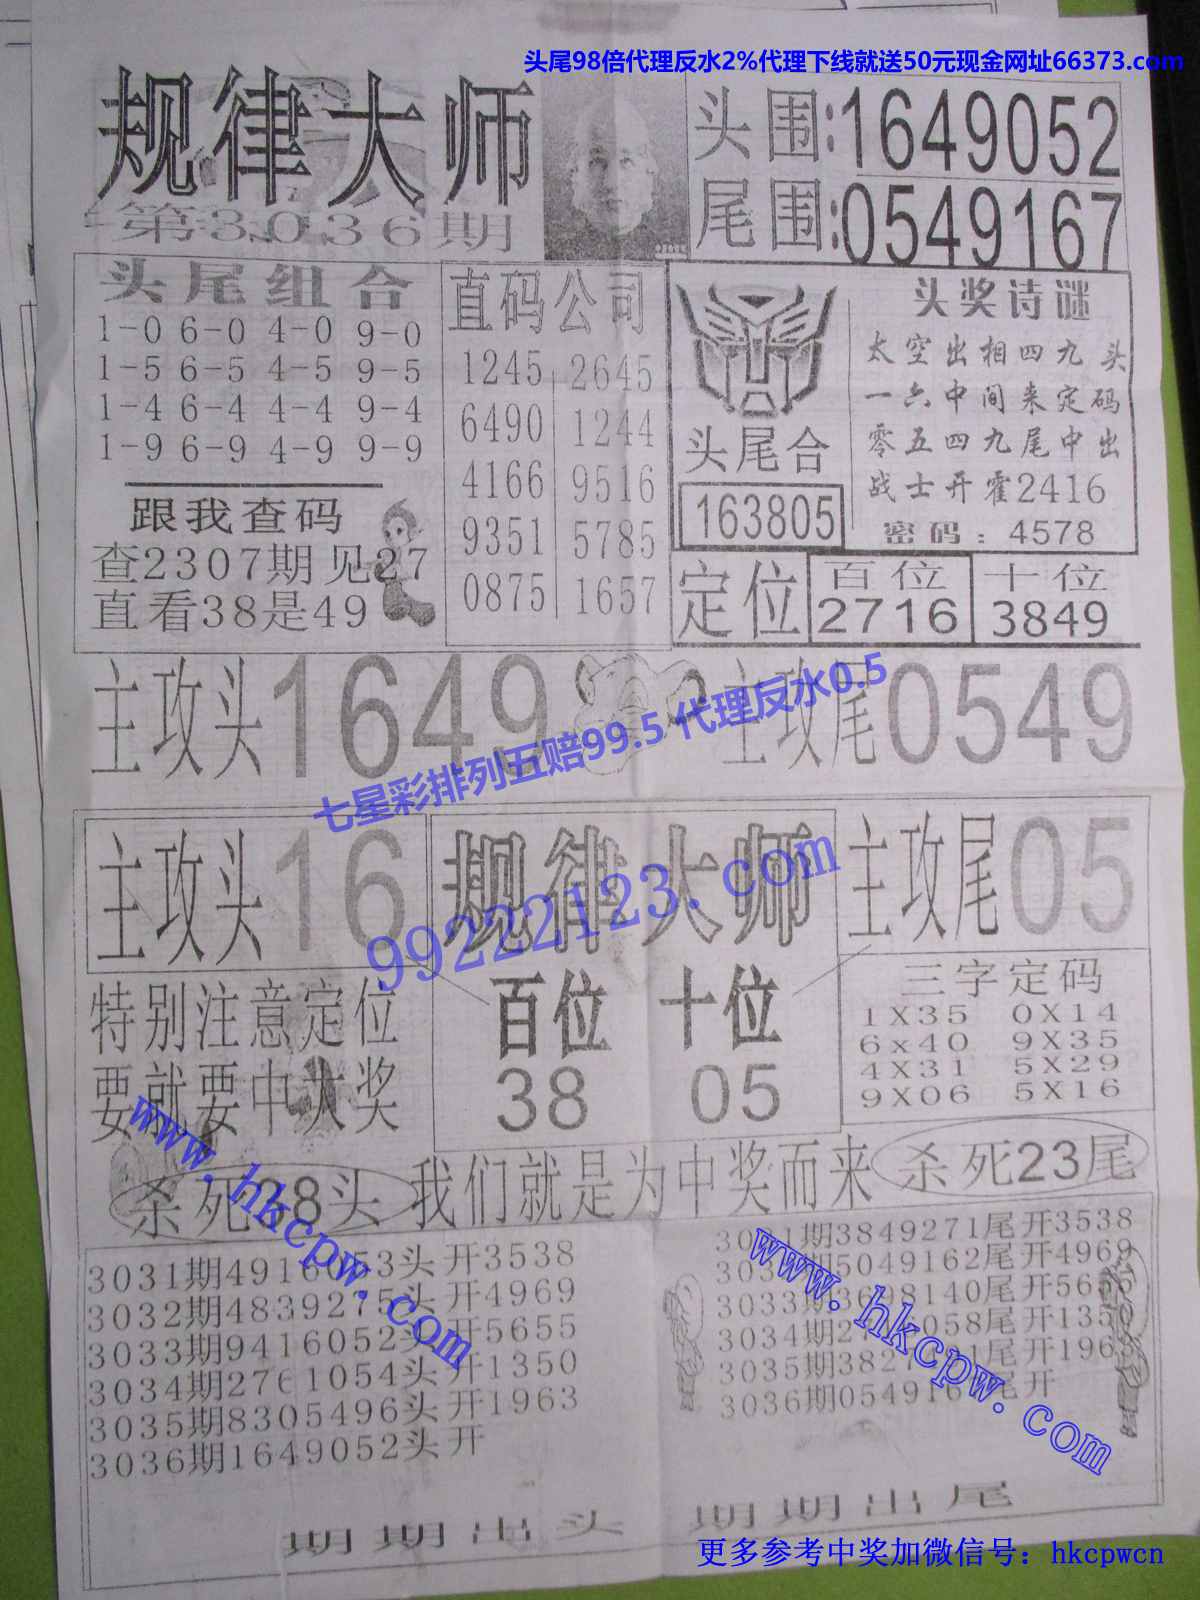 头尾98倍代理反水2%代理下线就送50元现金网址66373.com
规律大师
第3036期
头围:1649052
尾围:0549167
头尾组合
1-0 6-0 4-0 9-0
1-5 6-5 4-5 9-5
1-4 6-4 4-4 9-4
1-9 6-9 4-9 9-9
跟我查码
查2307期见27
直看38是49
直码公司
1245 2645
6490 1244
4166 9516
9351 5785
0875 1657
头尾合
163805
头奖诗谜
太空出相四九头
一六中间来定码
零五四九尾中出
战士开霍2416
密码：4578
定位
百位
2716
十位
3849
主攻头1649
主攻尾0549
七星彩排列五赔99.5 代理反水0.5
主攻头16
规律大师
主攻尾05
99222123.com
特别注意定位
要就要中大奖
百位 十位
38 05
三字定码
1X35 0X14
6x40 9X35
4X31 5X29
9X06 5X16
杀死38头
我们就是为中奖而来
杀死23尾
www.hkcpw.com
3031期4916053头开3538
3032期4839275头开4969
3033期9416052头开5655
3034期2761054头开1350
3035期8305496头开1963
3036期1649052头开
www.hkcpw.com
3031期3849271尾开3538
5049162尾开4969
3033期3698140尾开
3034期 058尾开1350
3035期 尾开
3036期054916 尾开
期期出头
期期出尾
更多参考中奖加微信号：hkcpwcn